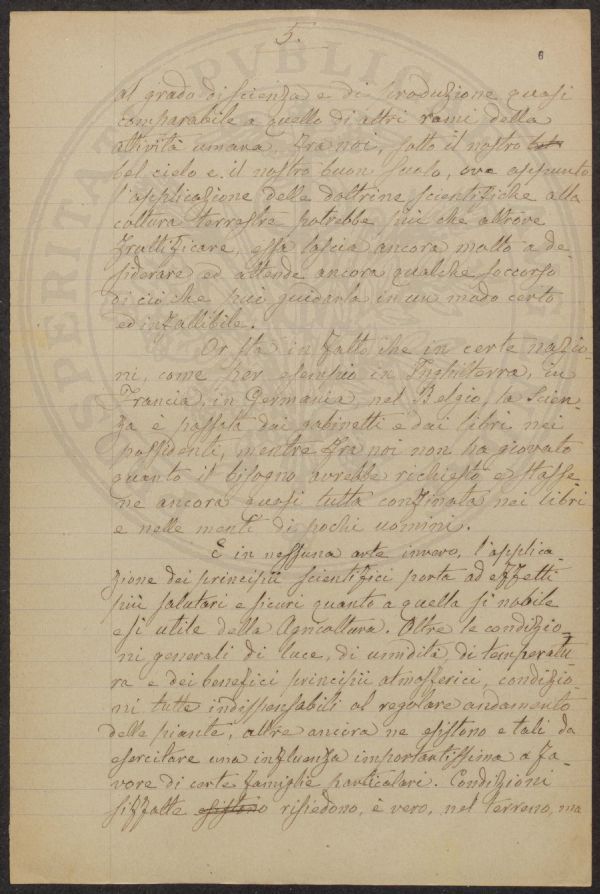 5.
8
al grado di scienza e di produzione quasi
comparabile a quello di altri rami della
attività umana. Fra noi, sotto il nostro
bel cielo e il nostro buon suolo, ove appunto
l'applicazione delle dottrine scientifiche alla
coltura terrestre potrebbe più che altrove
fruttificare, essa lascia ancora molto a de-
siderare ed attende ancora qualche soccorso
di ciò che può guidarla in un modo certo
ed infallibile.
Or sta in fatto che in certe nazio-
ni, come per esempio in Inghilterra, in
Francia, in Germania, nel Belgio, la scien-
za è passata dai gabinetti e dai libri nei
possidenti, mentre fra noi non ha giovato
quanto il bisogno avrebbe richiesto e stasse-
ne ancora quasi tutta confinata nei libri
e nelle menti di pochi uomini.
E in nessuna arte invero, l'applica-
zione dei principii scientifici porta ad effetti
più salutari e sicuri quanto a quella sì nobile
e sì utile della Agricoltura. Oltre le condizio-
ni generali di luce, di umidità di temperatu-
ra e dei benefici principii atmosferici, condizio-
ni tutte indispensabili al regolare andamento
delle piante, altre ancora ne esistono e tali da
esercitare una influenza importantissima a fa-
vore di certe famiglie particolari. Condizioni
siffatte esistono risiedono, è vero, nel terreno, ma
SPERITAT PVBLIC